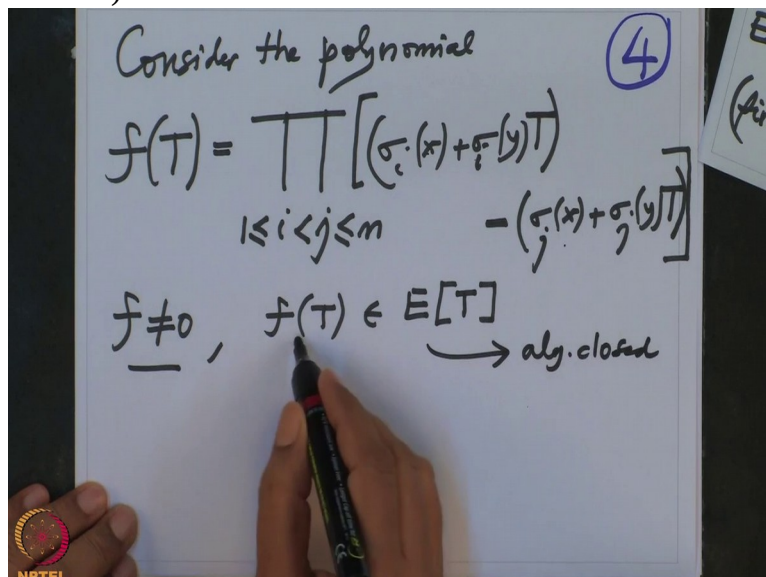 Consider the polynomial
④
f(T) = ∏ [(σ_i(x) + σ_i(y)T)
1 ≤ i < j ≤ n
- (σ_j(x) + σ_j(y)T)]
f ≠ 0 , f(T) ∈ E[T]
→ alg. closed
E
NPTEL